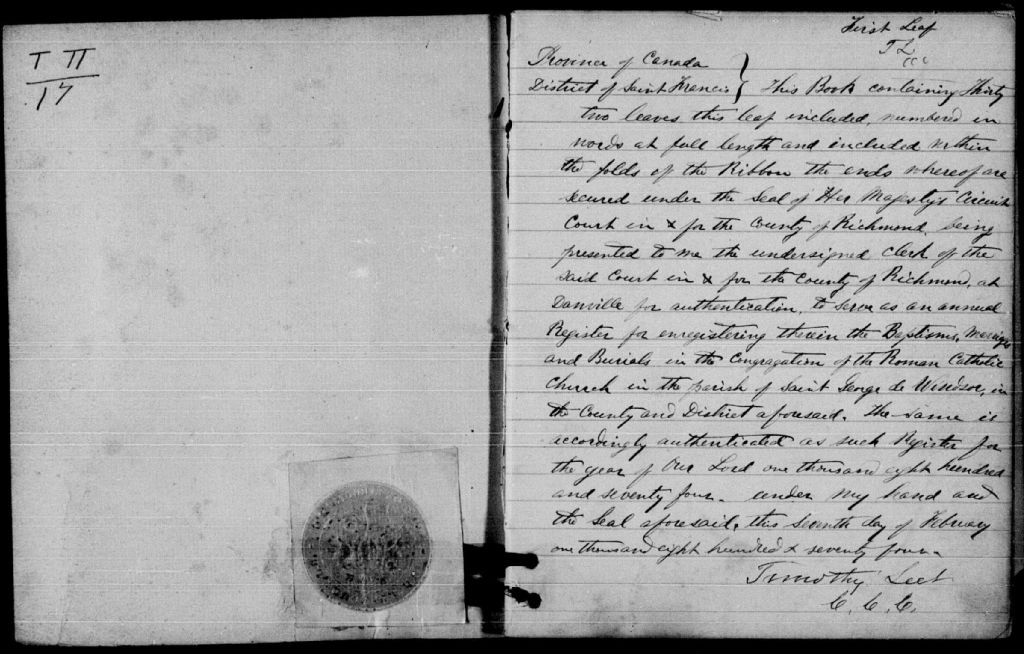 T II
17
First Leaf
T L
CCC
Province of Canada
District of Saint Francis } This Book containing Thirty
two leaves this leaf included, numbered in
words at full length and included within
the folds of the Ribbon the ends whereof are
secured under the Seal of Her Majesty's Circuit
Court in & for the County of Richmond, being
presented to me the undersigned clerk of the
said Court in & for the County of Richmond, at
Danville for authentication, to serve as an annual
Register for enregistering therein the Baptisms, Marriages
and Burials in the Congragation of the Roman Catholic
Church in the parish of Saint George de Windsor, in
the County and District aforesaid. The same is
accordingly authenticated as such Register for
the year of Our Lord one thousand eight hundred
and seventy four. under my hand and
the Seal aforesaid, this seventh day of February
one thousand eight hundred & seventy four.
Timothy Leet
C. C. C.